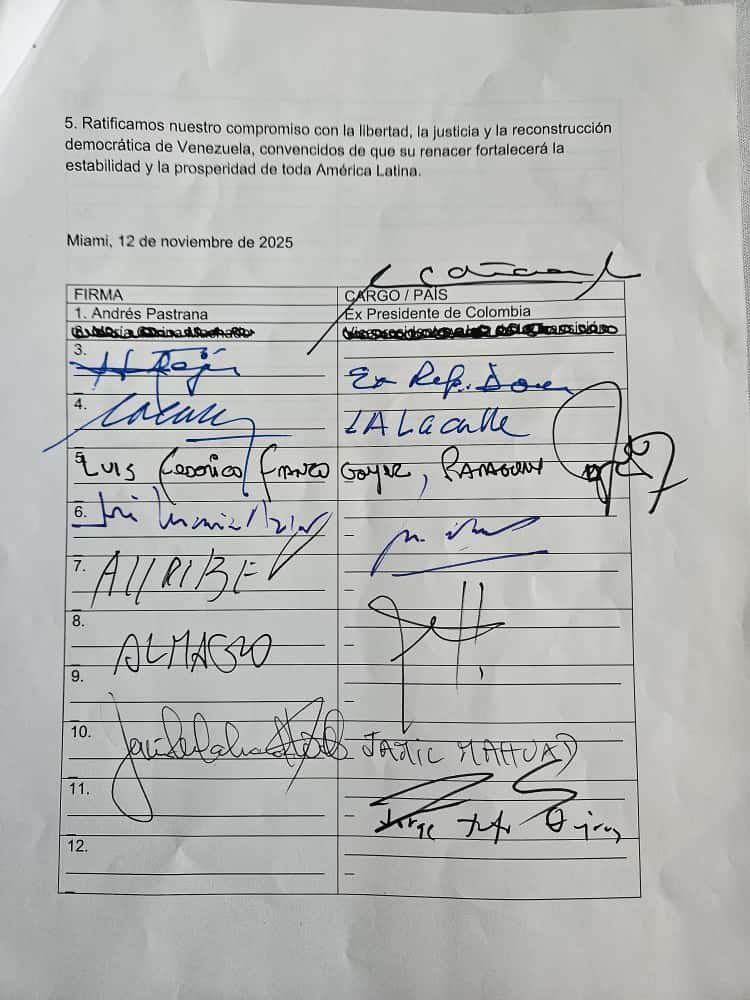 5. Ratificamos nuestro compromiso con la libertad, la justicia y la reconstrucción
democrática de Venezuela, convencidos de que su renacer fortalecerá la
estabilidad y la prosperidad de toda América Latina.
Miami, 12 de noviembre de 2025
FIRMA CARGO / PAÍS
1. Andrés Pastrana Ex Presidente de Colombia
3.
Ex Rep. Dom
4. LA Lacalle
5. LUIS Federico FRANCO GOMEZ, PARAGUAY
6.
7. A URIBE
8.
ALMAGRO
9.
10. JAMIL MAHUAD
11.
Jorge
12.